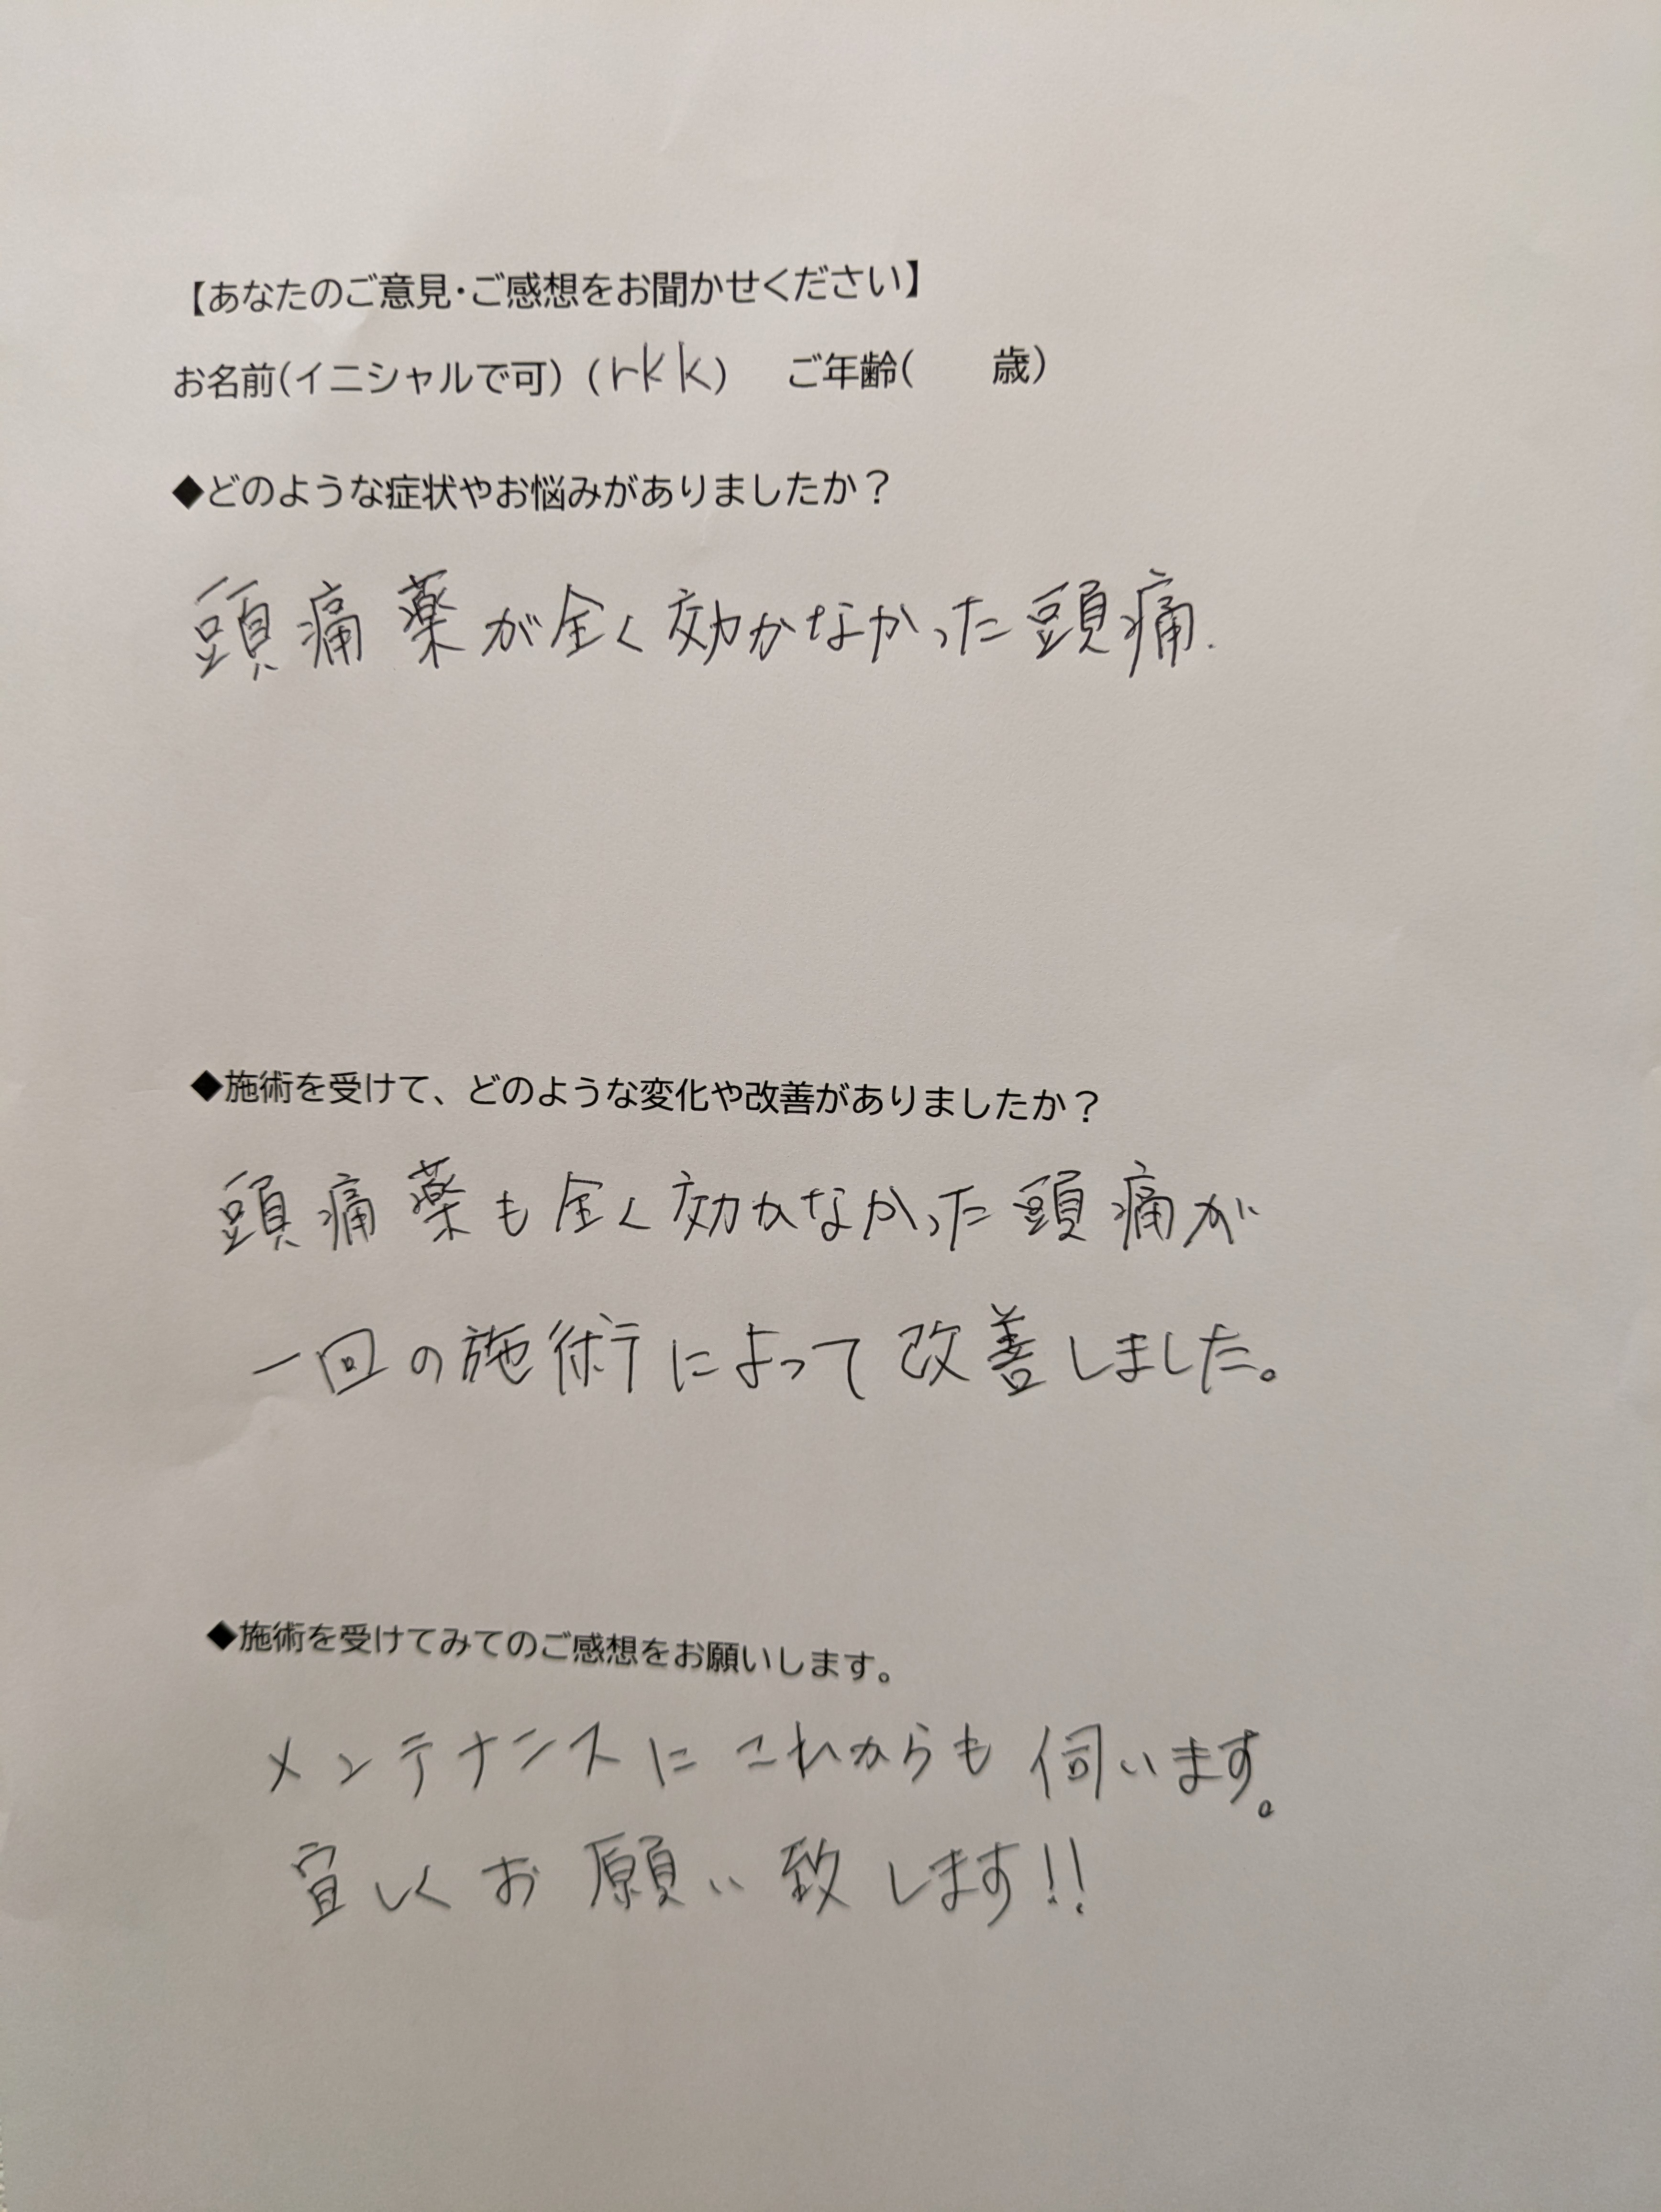 【あなたのご意見・ご感想をお聞かせください】
お名前(イニシャルで可) (rkk) ご年齢( 歳)
◆どのような症状やお悩みがありましたか？
頭痛薬が全く効かなかった頭痛.
◆施術を受けて、どのような変化や改善がありましたか？
頭痛薬も全く効かなかった頭痛が
一回の施術によって改善しました。
◆施術を受けてみてのご感想をお願いします。
メンテナンスにこれからも伺います。
宜しくお願い致します!!